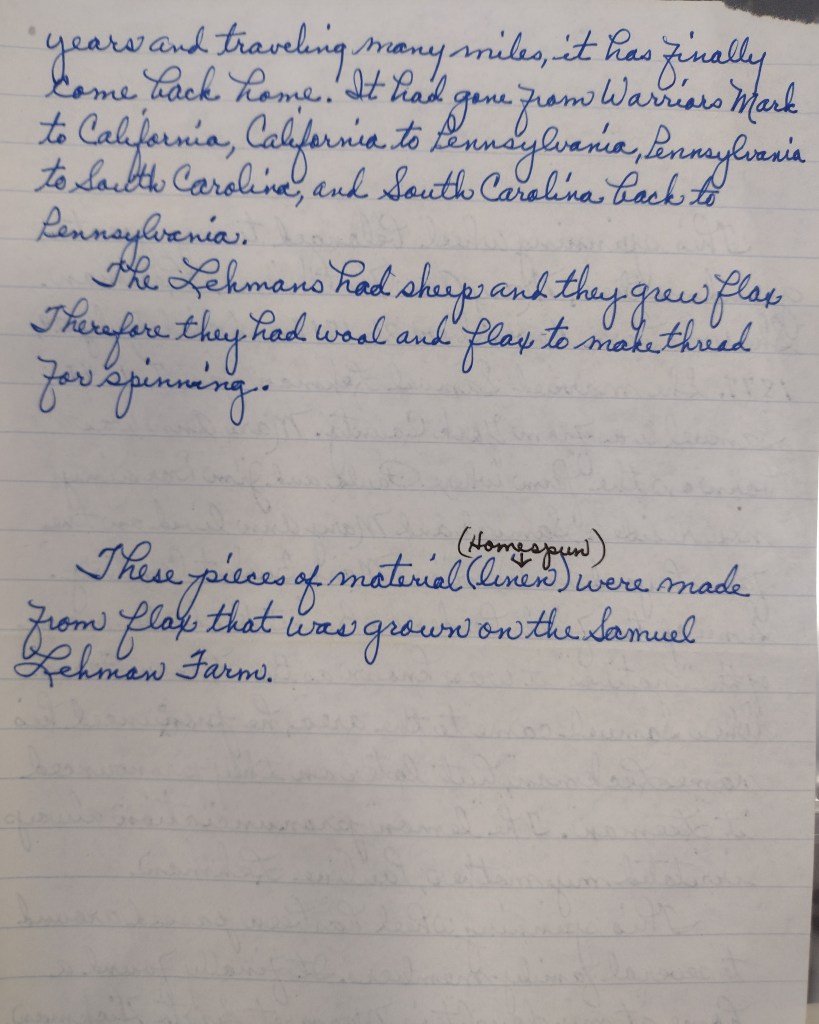 years and traveling many miles, it has finally
come back home. It had gone from Warriors Mark
to California, California to Pennsylvania, Pennsylvania
to South Carolina, and South Carolina back to
Pennsylvania.
The Lehmans had sheep and they grew flax
Therefore they had wool and flax to make thread
for spinning.
(Homespun)
These pieces of material (linen) were made
from flax that was grown on the Samuel
Lehman Farm.